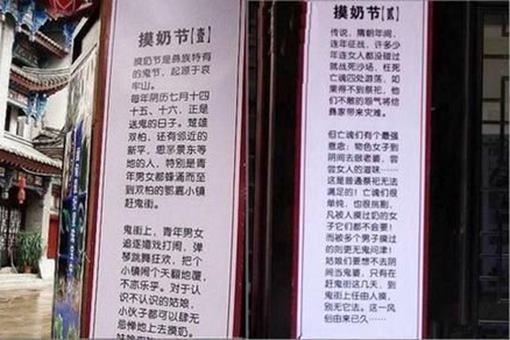 摸奶节【壹】
摸奶节是彝族特有
的鬼节，起源于哀
牢山。
每年阴历七月十四
十五、十六，正是
送鬼的日子。楚雄
双柏，还有邻近的
新平，思茅景东等
地的人，特别是青
年男女都蜂涌而至
到双柏的鄂嘉小镇
赶鬼街。
鬼街上，青年男女
追逐嬉戏打闹，弹
琴跳舞狂欢，把个
小镇闹个天翻地覆，
不亦乐乎。对于认
识不认识的姑娘，
小伙子都可以肆无
忌惮地上去摸奶。
摸奶节【贰】
传说，隋朝年间，
连年征战，许多少
年连女人都没碰过
就战死沙场，枉死
亡魂四处游荡，如
果得不到祭祀，他
们不散的怨气将给
彝家带来灾难。
但亡魂们有个最强
意念：物色女子到
阴间去做老婆，尝
尝女人的滋味……
这是普通祭祀无法
满足的！亡魂们很
单纯，也很挑剔，
凡被人摸过奶的女
子它们都不会要！
而被多个男子摸过
的则更无鬼问津！
姑娘们要想不去阴
间当鬼妻，只有在
赶鬼街这几天，到
鬼街上任由人摸，
别无它法。这一风
俗由来已久……